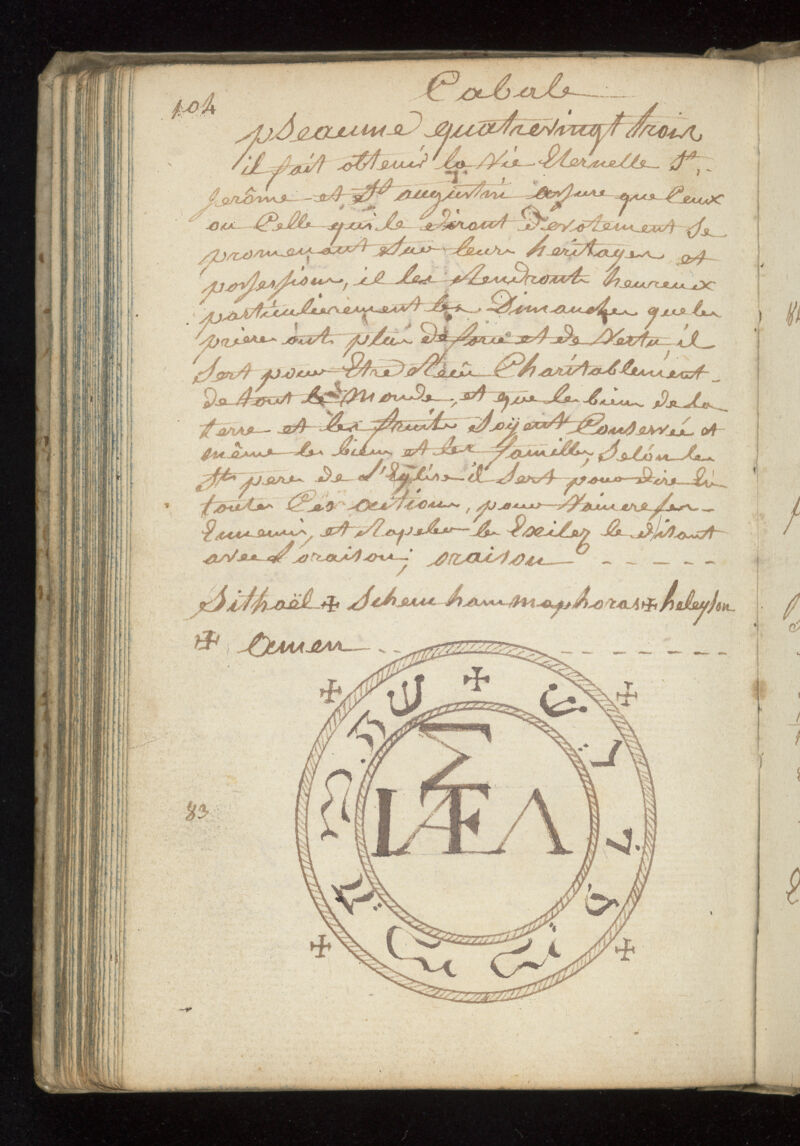 104
Cabale
pseaume quatrevingt trois
il fait obtenir la Vie Eternelle St.
Jerôme et St augustin assure que Ceux
ou Celle qui le diront Devotement Se
promenant Sur leurs heritages et
possessions, il les Rendront heureux
particulierement les Dimanches que les
priere ont plus de force et de Vertu il
Sert pour Etre Charitablement
de tout le Monde, et que les biens de la
terre et les fruits Soÿent Conservée et
même les biens et les familles, Selon les
Sts peres de L'Eglise il Sert pour dire En
toutes Ces actions, pour Vaincre ses
Ennemis, et Rapeler les Exilez le disant
avec L'oraison; oraison
Sithaël ✠ Schem hammaphoras ✠ heleyson
✠ amen
83
Σ
IÆΛ